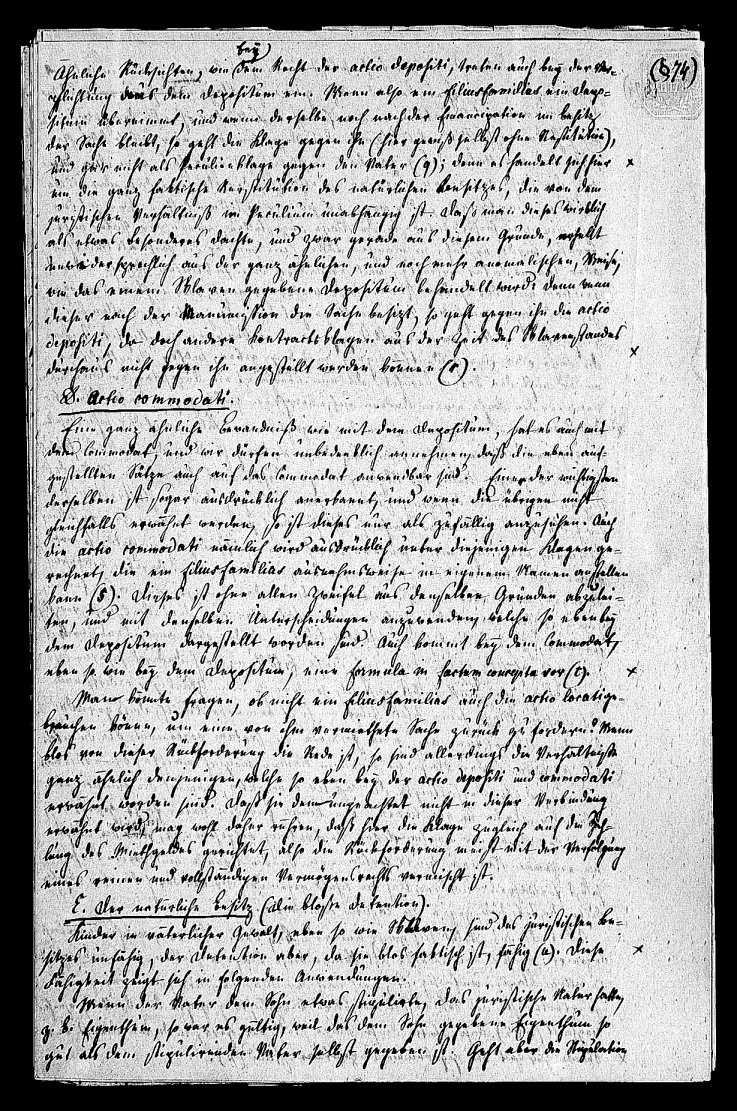 (874)
bey
Ähnliche Rücksichten, wie dem Recht der actio depositi, treten auch bey der Ver-
pflichtung aus dem Depositum ein. Wenn also ein filiusfamilias ein Depo-
situm übernimmt, und wenn derselbe noch nach der Emancipation im Besitz
der Sache bleibt, so geht die Klage gegen ihn (hier gewiß selbst ohne Restitution),
und gar nicht als Peculienklage gegen den Vater (q); denn es handelt sich hier
um die ganz faktische Restitution des natürlichen Besitzes, die von dem
juristischen Verhältniß im Peculium unabhängig ist. Daß man dieses wirklich
als etwas besonderes dachte, und zwar gerade aus diesem Grunde, erhellt
unwidersprechlich aus der ganz ähnlichen, und noch mehr anomalischen, Weise,
wie das einem Sklaven gegebene Depositum behandelt wird: denn wenn
dieser nach der Manumission die Sache besitzt, so geht gegen ihn die actio
depositi, da doch andere Kontractsklagen aus der Zeit des Sklavenstandes
durchaus nicht gegen ihn angestellt werden können (r).
D. Actio commodati.
Eine ganz ähnliche Bewandniß wie mit dem Depositum, hat es auch mit
dem Commodat, und wir dürfen unbedenklich annehmen, daß die eben auf-
gestellten Sätze auch auf das Commodat anwendbar sind. Einer der wichtigsten
derselben ist sogar ausdrücklich anerkannt, und wenn die übrigen nicht
gleichfalls erwähnt werden, so ist dieses nur als zufällig anzusehen. Auch
die actio commodati nämlich wird ausdrücklich unter diejenigen Klagen ge-
rechnet, die ein filiusfamilias ausnahmsweise in eigenem Namen anstellen
kann (s). Dieses ist ohne allen Zweifel aus denselben Gründen abzulei-
ten, und mit denselben Unterscheidungen anzuwenden, welche so eben bey
dem Depositum dargestellt worden sind. Auch kommt bey dem Commodat,
eben so wie bey dem Depositum, eine formula in factum concepta vor (t).
Man könnte fragen, ob nicht ein filiusfamilias auch die actio locati ge-
brauchen könne, um eine von ihm vermiethete Sache zurück zu fordern? Wenn
blos von dieser Rückforderung die Rede ist, so sind allerdings die Verhältnisse
ganz ähnlich denjenigen, welche so eben bey der actio depositi und commodati
erwähnt worden sind. Daß sie demungeachtet nicht in dieser Verbindung
erwähnt wird, mag wohl daher rühren, daß hier die Klage zugleich auf die Zah-
lung des Miethgeldes gerichtet, also die Rückforderung meist mit der Verfolgung
eines reinen und vollständigen Vermögensrechts vermischt ist.
E. Der natürliche Besitz (die bloße Detention).
Kinder in väterlicher Gewalt, eben so wie Sklaven, sind des juristischen Be-
sitzes unfähig, der Detention aber, da sie blos faktisch ist, fähig (u). Diese
Fähigkeit zeigt sich in folgenden Anwendungen.
Wenn der Vater dem Sohn etwas stipulirte, das juristische Natur hatte,
z. B. Eigenthum, so war es gültig, weil das dem Sohn gegebene Eigenthum so
gut als dem stipulirenden Vater selbst gegeben ist. Geht aber die Stipulation